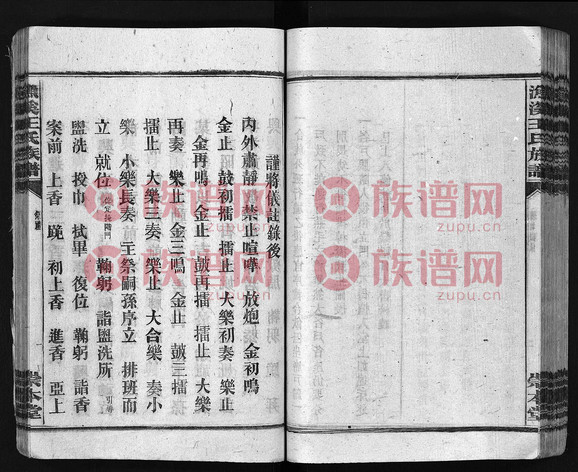 謹將儀註錄後
內外肅靜 禁止喧嘩 放炮 金初鳴
金止 鼓初擂 擂止 大樂初奏 樂止
金再鳴 金止 鼓再擂 擂止 大樂
再奏 樂止 金三鳴 金止 鼓三擂
擂止 大樂三奏 樂止 大合樂 奏小
樂 小樂長奏 主祭嗣孫序立 排班而
立 就位 鞠躬 詣盥洗所
盥洗 投巾 拭畢 復位 鞠躬 詣香
案前 上香 跪 初上香 進香 亞上
王氏族譜
崇本堂
王氏族譜
崇本堂
族谱网
zupu.cn
族谱网
zupu.cn
族谱网
zupu.cn
族谱网
zupu.cn